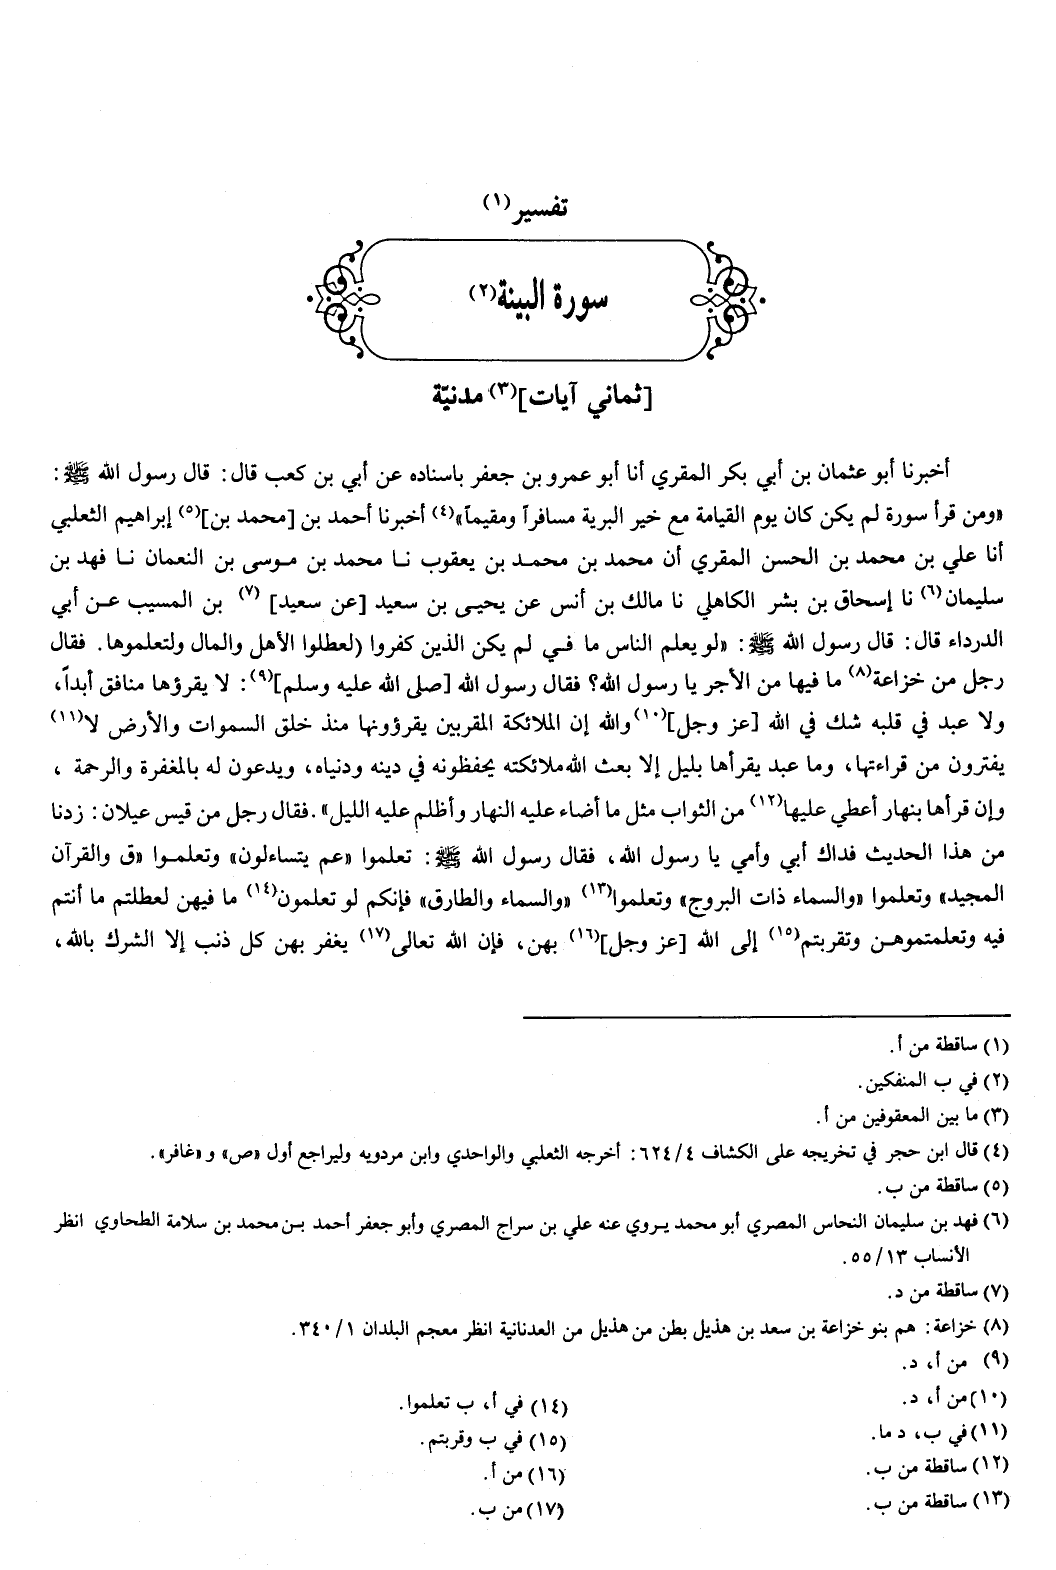 تفسير(١)
سورة البينة(٢)
[ثماني آيات](٣) مدنيّة
أخبرنا أبو عثمان بن أبي بكر المقري أنا أبو عمرو بن جعفر باسناده عن أبي بن كعب قال: قال رسول الله ﷺ:
«ومن قرأ سورة لم يكن كان يوم القيامة مع خير البرية مسافراً ومقيماً»(٤) أخبرنا أحمد بن [محمد بن](٥) إبراهيم الثعلبي
أنا علي بن محمد بن الحسن المقري أن محمد بن محمد بن يعقوب نا محمد بن موسى بن النعمان نا فهد بن
سليمان(٦) نا إسحاق بن بشر الكاهلي نا مالك بن أنس عن يحيى بن سعيد [عن سعيد] (٧) بن المسيب عن أبي
الدرداء قال: قال رسول الله ﷺ: «لو يعلم الناس ما في لم يكن الذين كفروا (لعطلوا الأهل والمال ولتعلموها. فقال
رجل من خزاعة(٨) ما فيها من الأجر يا رسول الله؟ فقال رسول الله [صلى الله عليه وسلم](٩): لا يقرؤها منافق أبداً،
ولا عبد في قلبه شك في الله [عز وجل](١٠)والله إن الملائكة المقربين يقرؤونها منذ خلق السموات والأرض لا(١١)
يفترون من قراءتها، وما عبد يقرأها بليل إلا بعث الله ملائكته يحفظونه في دينه ودنياه، ويدعون له بالمغفرة والرحمة ،
وإن قرأها بنهار أعطي عليها(١٢) من الثواب مثل ما أضاء عليه النهار وأظلم عليه الليل». فقال رجل من قيس عيلان: زدنا
من هذا الحديث فداك أبي وأمي يا رسول الله، فقال رسول الله ﷺ: تعلموا «عم يتساءلون» وتعلموا «ق والقرآن
المجيد» وتعلموا «والسماء ذات البروج» وتعلموا(١٣) «والسماء والطارق» فإنكم لو تعلمون(١٤) ما فيهن لعطلتم ما أنتم
فيه وتعلمتموهن وتقربتم(١٥) إلى الله [عز وجل](١٦) بهن، فإن الله تعالى(١٧) يغفر بهن كل ذنب إلا الشرك بالله،
(١) ساقطة من أ.
(٢) في ب المنفكين.
(٣) ما بين المعقوفين من أ.
(٤) قال ابن حجر في تخريجه على الكشاف ٦٢٤/٤: أخرجه الثعلبي والواحدي وابن مردويه وليراجع أول «ص» و«غافر».
(٥) ساقطة من ب.
(٦) فهد بن سليمان النحاس المصري أبو محمد يروي عنه علي بن سراج المصري وأبو جعفر أحمد بن محمد بن سلامة الطحاوي انظر
الأنساب ٥٥/١٣.
(٧) ساقطة من د.
(٨) خزاعة: هم بنو خزاعة بن سعد بن هذيل بطن من هذيل من العدنانية انظر معجم البلدان ٣٤٠/١.
(٩) من أ، د.
(١٠) من أ، د.
(١١) في ب، د ما.
(١٢) ساقطة من ب.
(١٣) ساقطة من ب.
(١٤) في أ، ب تعلموا.
(١٥) في ب وقربتم.
(١٦) من أ.
(١٧) من ب.